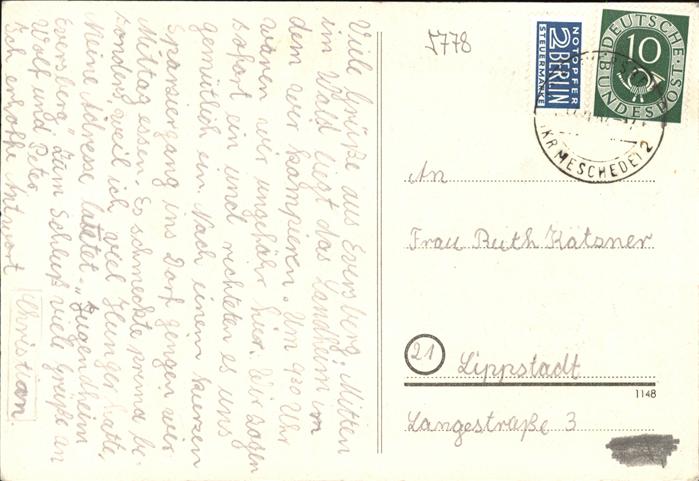 Viele Grüße aus Eversberg. Mitten
im Wald liegt das Landheim im
dem wir kampieren. Um 9³⁰ Uhr
waren wir ungefähr hier. Wir zogen
sofort ein und richteten es uns
gemütlich ein. Nach einem kurzen
Spaziergang ins Dorf gingen wir
Mittag essen. Es schmeckte prima be-
sonders, weil ich viel Hunger hatte.
Meine Adresse lautet: „Jugendheim
Eversberg" Zum Schluß viele Grüße an
Wolf und Peter
Ich erhoffe Antwort
Christian
5778
NOTOPFER
2 BERLIN
STEUERMARKE
DEUTSCHE
10
BUNDESPOST
(KR MESCHEDE) 2
An
Frau Ruth Katzner
21 Lippstadt
1148
Langestraße 3